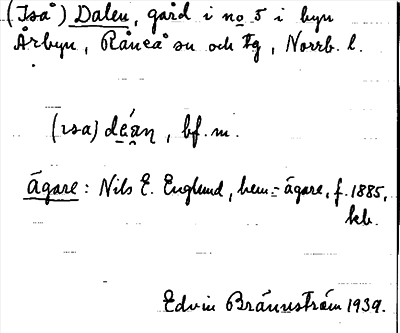 (Isa) Dalen, gård i no 5 i byn
Årbyn, Råneå sn och tg, Norrb. l.
(ısa) déan, bf. m.
ägare: Nils E. Englund, hem.-ägare, f. 1885,
kb.
Edvin Brännström 1939.